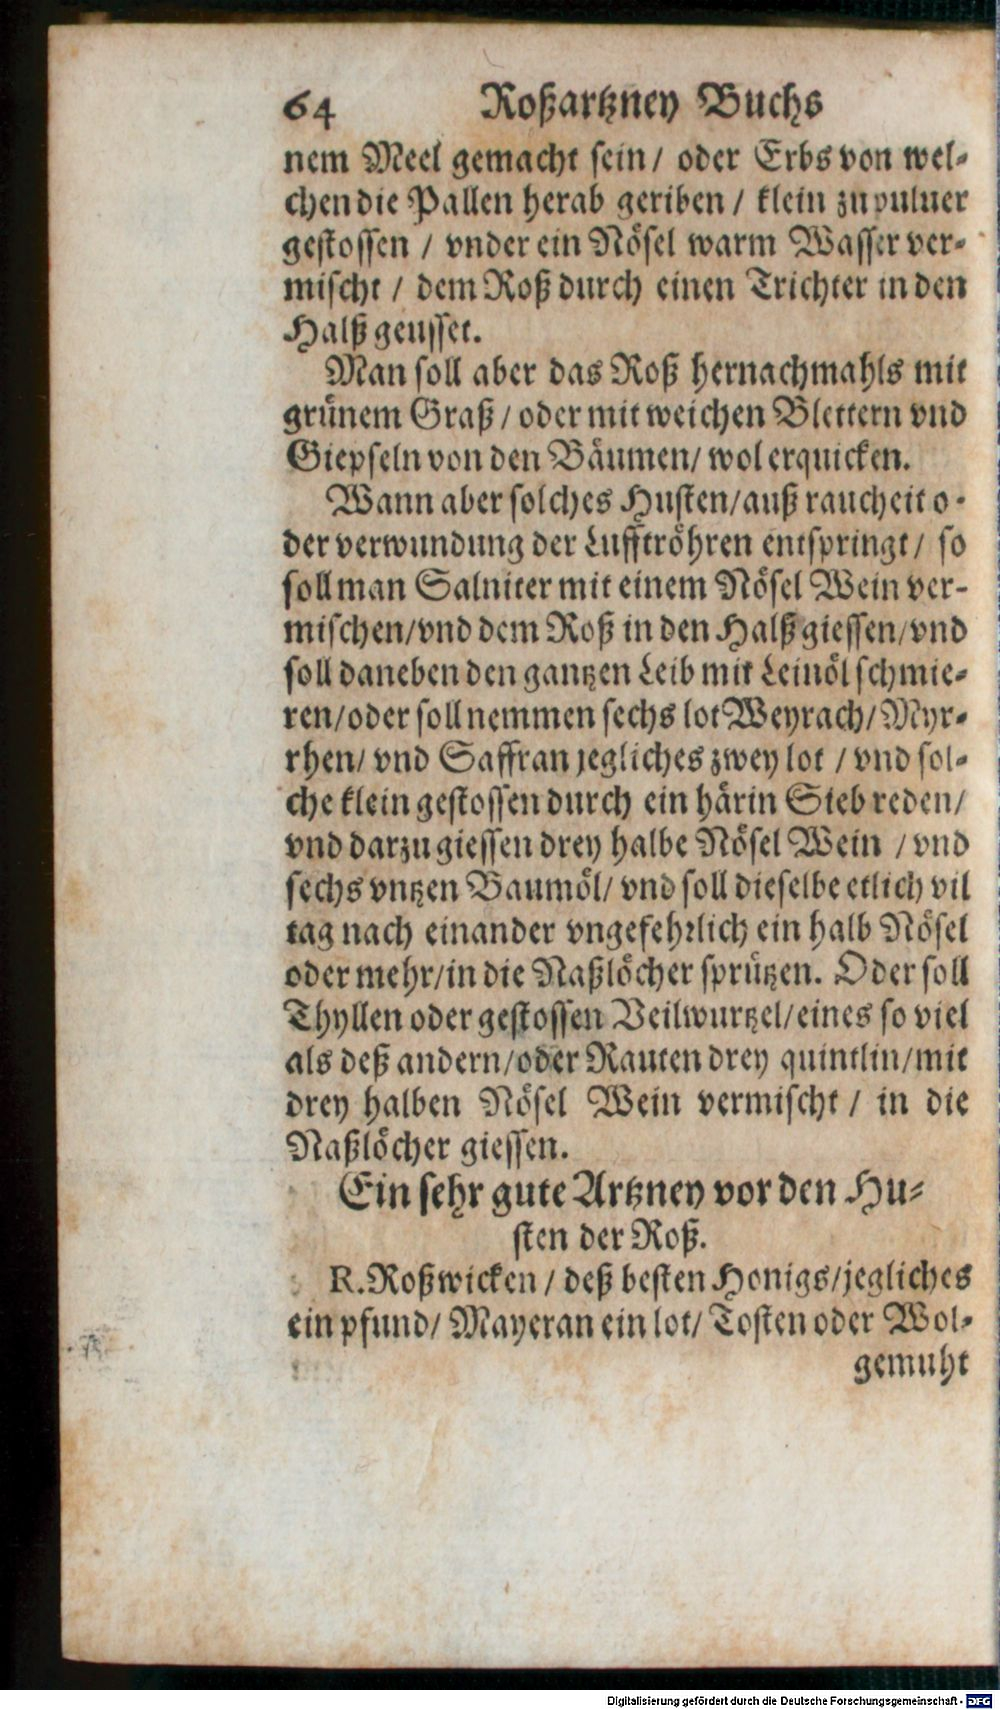 64 Roßartzney Buchs
nem Meel gemacht sein/ oder Erbs von wel-
chen die Pallen herab geriben / klein zu puluer
gestossen / vnder ein Nösel warm Wasser ver-
mischt / dem Roß durch einen Trichter in den
Halß geusset.
Man soll aber das Roß hernachmahls mit
grünem Graß / oder mit weichen Blettern vnd
Giepseln von den Bäumen/ wol erquicken.
Wann aber solches Husten/auß raucheit o-
der verwundung der Lufftröhren entspringt/ so
soll man Salniter mit einem Nösel Wein ver-
mischen/vnd dem Roß in den Halß giessen/vnd
soll daneben den gantzen Leib mit Leinöl schmie-
ren/oder soll nemmen sechs lot Weyrach/Myr-
rhen/ vnd Saffran jegliches zwey lot / vnd sol-
che klein gestossen durch ein härin Sieb reden/
vnd darzu giessen drey halbe Nösel Wein / vnd
sechs vntzen Baumöl/ vnd soll dieselbe etlich vil
tag nach einander vngefehrlich ein halb Nösel
oder mehr/in die Naßlöcher sprützen. Oder soll
Thyllen oder gestossen Veilwurtzel/eines so viel
als deß andern/oder Rauten drey quintlin/mit
drey halben Nösel Wein vermischt / in die
Naßlöcher giessen.
Ein sehr gute Artzney vor den Hu-
sten der Roß.
R. Roßwicken / deß besten Honigs/jegliches
ein pfund/ Mayeran ein lot/ Tosten oder Wol-
gemuht
Digitalisierung gefördert durch die Deutsche Forschungsgemeinschaft - DFG